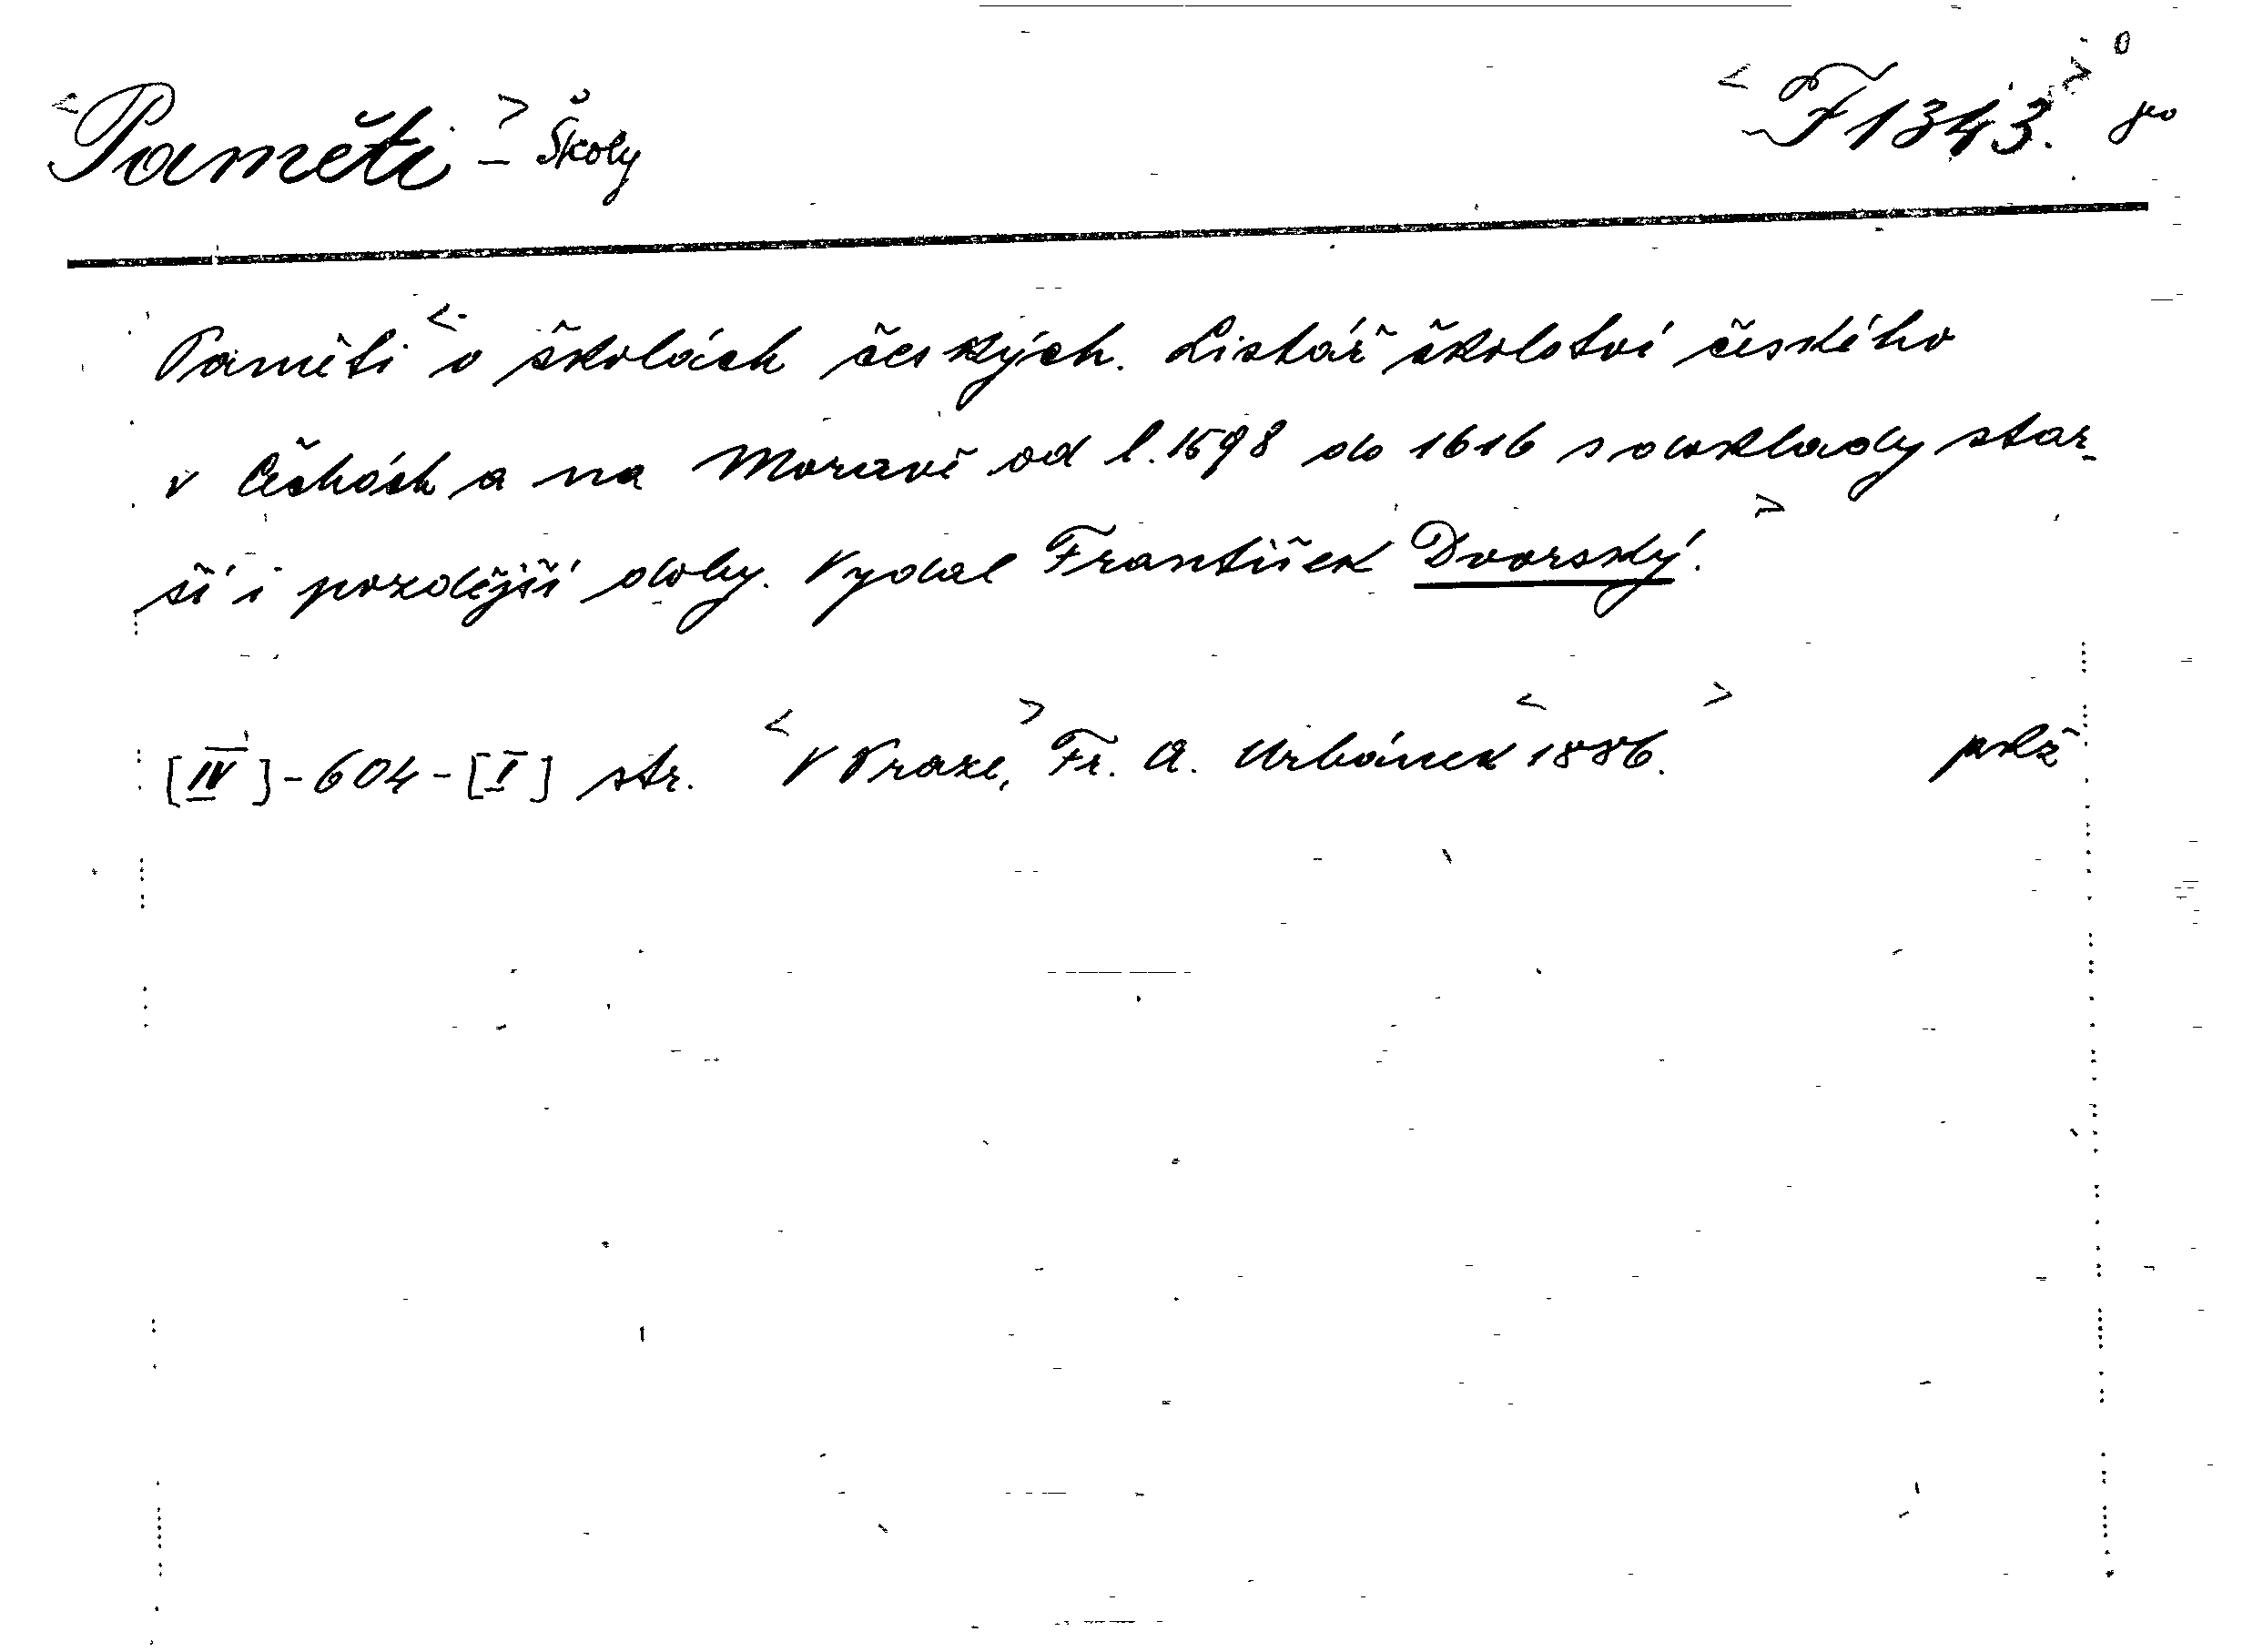 <Paměti> - Školy <F 1343.>
Paměti <o školách českých. Listář školství českého
v Čechách a na Moravě od l. 1598 do 1616 s doklady star-
ší i pozdější doby. Vydal František Dvorský.>
[IV]-604-[I] str. <V Praze,> Fr. A. Urbánek <1886.> pkž